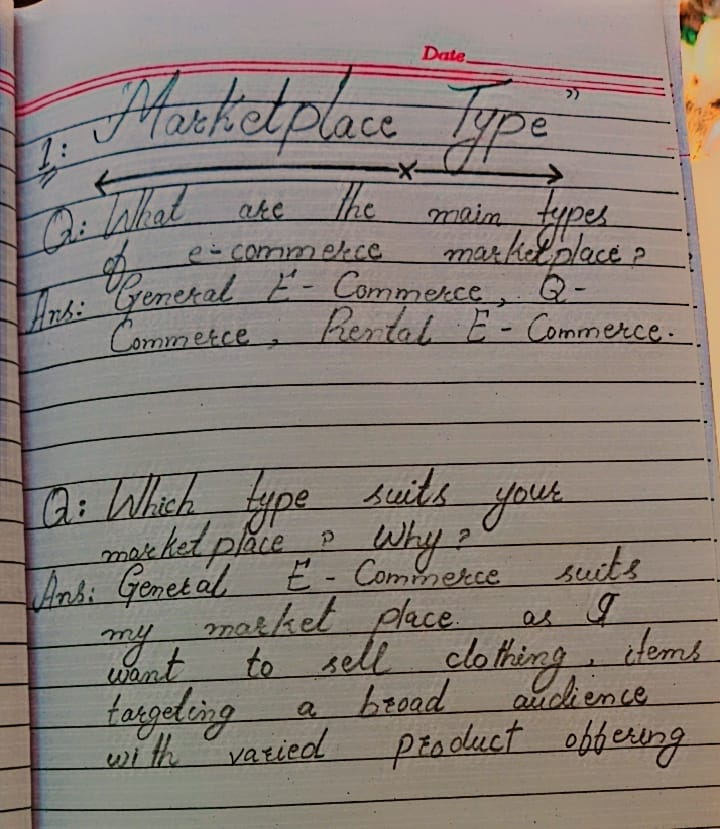 Date
1: Marketplace Type "
Q: What are the main types
of e-commerce marketplace?
Ans: General E-Commerce, Q-
Commerce, Rental E-Commerce.
Q: Which type suits your
marketplace? Why?
Ans: General E-Commerce suits
my market place. as I
want to sell clothing, items
targeting a broad audience
with varied product offering